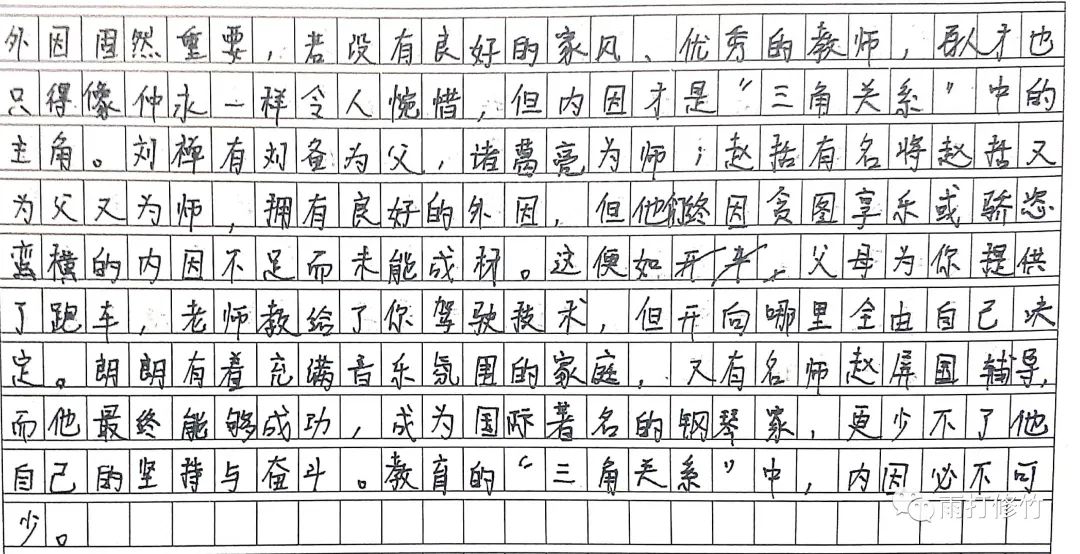 外因固然重要，若没有良好的家风、优秀的教师，再人才也
只得像仲永一样令人惋惜，但内因才是“三角关系”中的
主角。刘禅有刘备为父，诸葛亮为师；赵括有名将赵括又
为父又为师，拥有良好的外因，但他们终因贪图享乐或骄恣
蛮横的内因不足而未能成材。这便如开车，父母为你提供
了跑车，老师教给了你驾驶技术，但开向哪里全由自己决
定。朗朗有着充满音乐氛围的家庭，又有名师赵屏国辅导，
而他最终能够成功，成为国际著名的钢琴家，更少不了他
自己的坚持与奋斗。教育的“三角关系”中，内因必不可
少。
雨打修竹